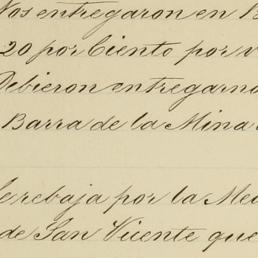 Nos entregaron en B
20 por Ciento por v
Debieron entregarno
Barra de la Mina
Se rebaja por la Me
de San Vicente que